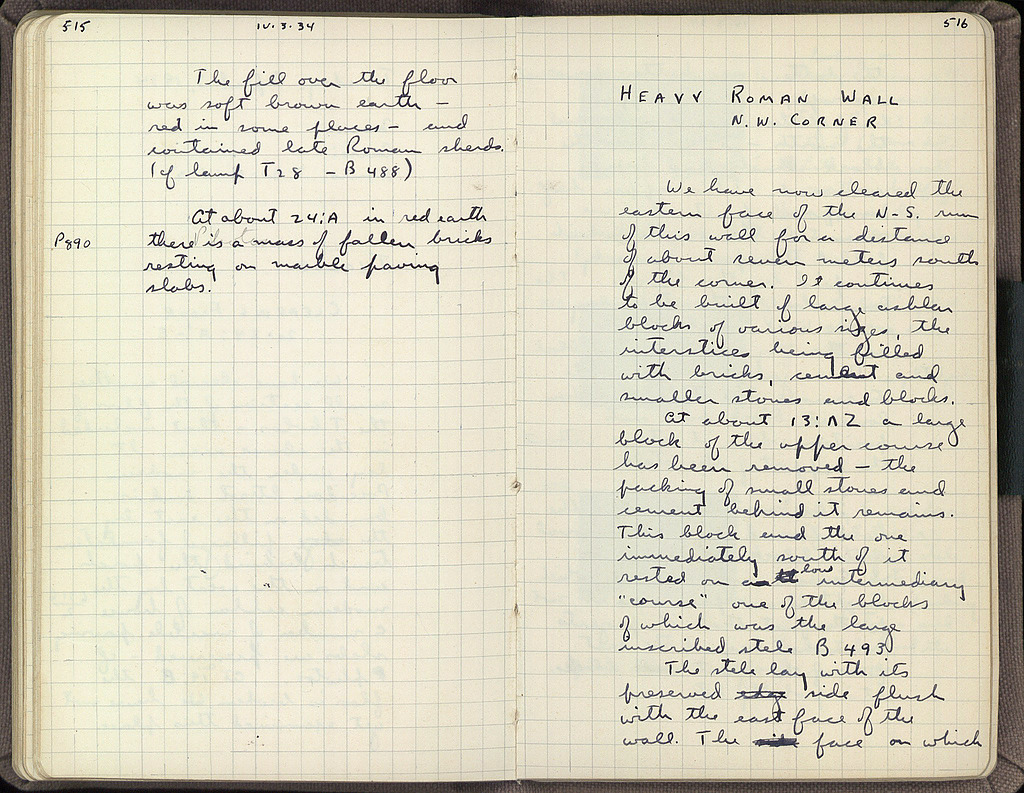 515
IV.3.34
The fill over the floor
was soft brown earth —
red in some places — and
contained late Roman sherds.
(cf lamp T28 – B 488)
At about 24:A in red earth
P890
there is a mass of fallen bricks
resting on marble paving
slabs.
516
HEAVY ROMAN WALL
N.W. CORNER
We have now cleared the
eastern face of the N-S. run
of this wall for a distance
of about seven meters south
of the corner. It continues
to be built of large ashlar
blocks of various sizes, the
interstices being filled
with bricks, cement and
smaller stones and blocks.
At about 13:ΛΖ a large
block of the upper course
has been removed — the
packing of small stones and
cement behind it remains.
This block and the one
immediately south of it
rested on a low intermediary
"course" one of the blocks
of which was the large
inscribed stele B 493
The stele lay with its
preserved edge side flush
with the east face of the
wall. The side face on which